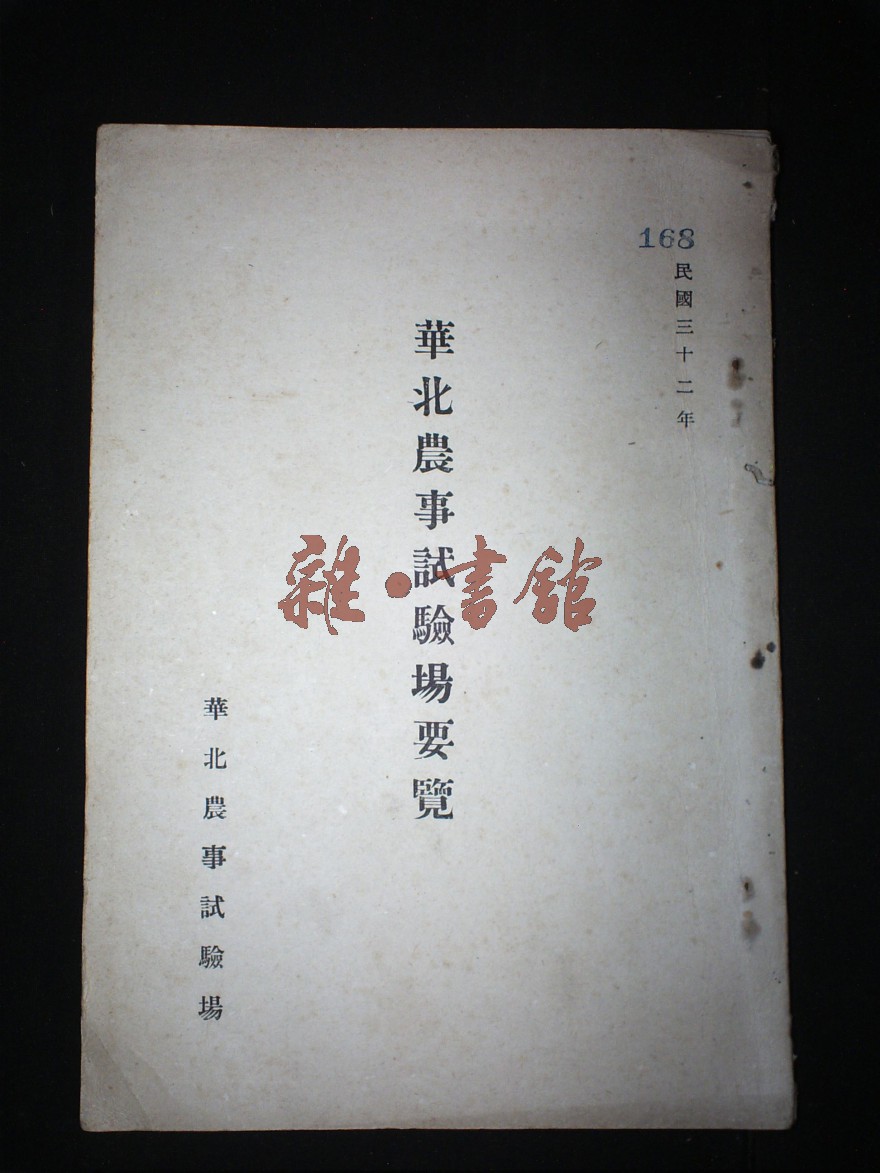 168
民國三十二年
華北農事試驗場要覽
雜·書館
華北農事試驗場